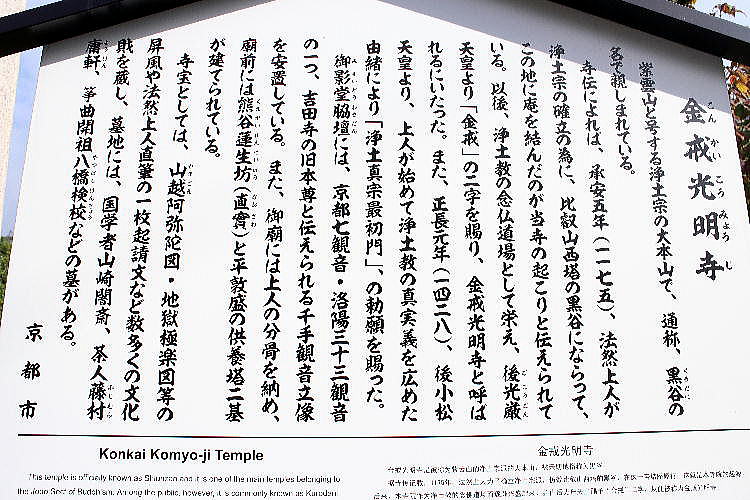 金戒光明寺
こん かい こう みょう じ
紫雲山と号する浄土宗の大本山で、通称、黒谷の
くろだに
名で親しまれている。
寺伝によれば、承安五年（一一七五）、法然上人が
浄土宗の確立の為に、比叡山西塔の黒谷にならって、
この地に庵を結んだのが当寺の起こりと伝えられて
いる。以後、浄土教の念仏道場として栄え、後光厳
ごこうごん
天皇より「金戒」の二字を賜り、金戒光明寺と呼ば
れるにいたった。また、正長元年（一四二八）、後小松
天皇より、上人が始めて浄土教の真実義を広めた
由緒により「浄土真宗最初門」、の勅願を賜った。
御影堂脇壇には、京都七観音・洛陽三十三観音
みえいどうわきだん
の一つ、吉田寺の旧本尊と伝えられる千手観音立像
を安置している。また、御廟には上人の分骨を納め、
廟前には熊谷蓮生坊（直實）と平敦盛の供養塔二基
が建てられている。
寺宝としては、山越阿弥陀図・地獄極楽図等の
屏風や法然上人直筆の一枚起請文など数多くの文化
財を蔵し、墓地には、国学者山崎闇斎、茶人藤村
庸軒、箏曲開祖八橋検校などの墓がある。
京都市
Konkai Komyo-ji Temple
This temple is officially known as Shunzan and it is one of the main temples belonging to
the Jodo Sect of Buddhism. Among the public, however, it is commonly known as Kurodani.
金戒光明寺